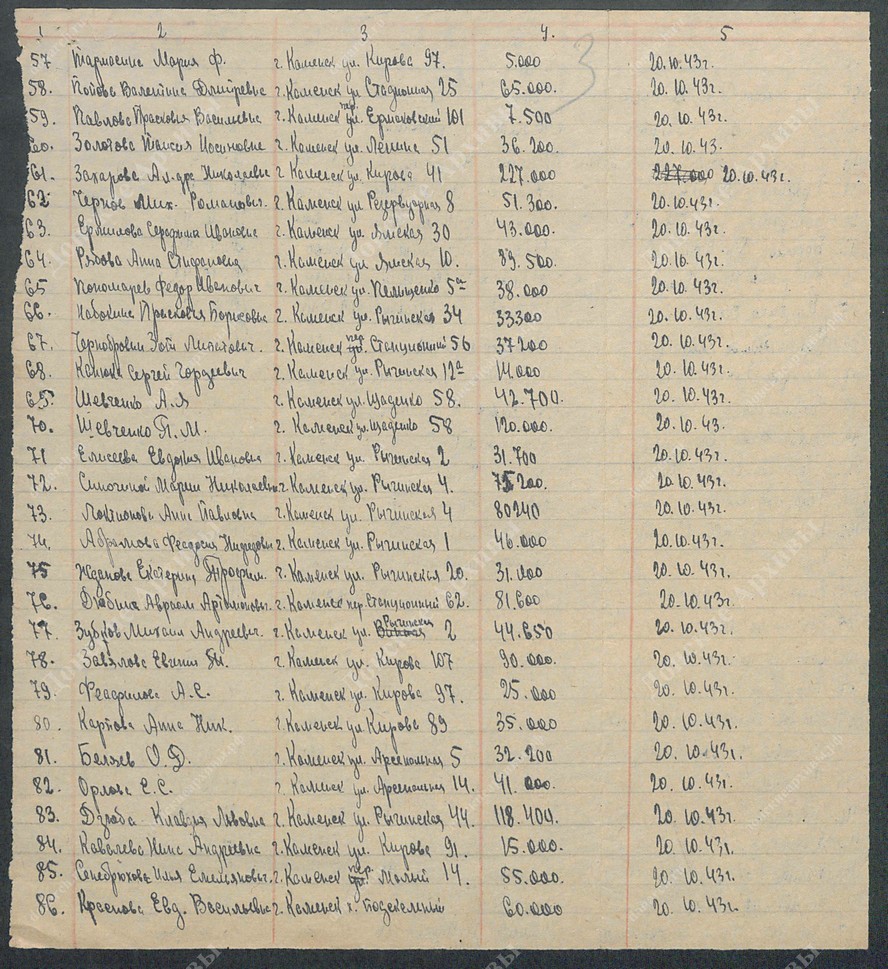 1 2 3 4. 5
57 Тарасенко Мария Ф. г. Каменск ул. Кирова 97. 5.000 20.10.43г.
58. Попова Валентина Дмитревна г. Каменск ул Стадионная 25 65.000. 20.10.43г.
59. Павлова Прасковья Васильевна г. Каменск пер. Ермаковский 101 7.500 20.10.43г.
60. Золотова Таисия Иосиповна г. Каменск ул. Ленина 51 36.200. 20.10.43.
61. Захарова Ал-дра Николаевна г. Каменск ул. Кирова 41 227.000 227.000 20.10.43г.
62 Чернов Мих. Романович. г. Каменск ул Резервуарная 8 51.300. 20.10.43г.
63. Ермилова Серафима Ивановна г. Каменск ул. Ямская 30 43.000. 20.10.43г.
64. Рябова Анна Стифановна г. Каменск ул Ямская 10. 89.500. 20.10.43г.
65 Пономарев Федор Иванович г. Каменск ул. 5а 38.000 20.10.43г.
66. Набокина Прасковья Борисовна г. Каменск ул. Рыгинская 34 33300 20.10.43г.
67. Зоти г. Каменск пер. Станционный 56 37200 20.10.43г.
68. Сергей Гордеевич г. Каменск ул. Рыгинская 12а 11.000 20.10.43г.
69. Шевченко А.Я г. Каменск ул. Щаденко 58. 42.700. 20.10.43г.
70. Шевченко П.М. г. Каменск ул. Щаденко 58 120.000. 20.10.43.
71 Елисеева Евдокия Ивановна г. Каменск ул. Рыгинская 2 31.700 20.10.43г.
72. Мария Николаевна г. Каменск ул. Рыгинская 4. 75200. 20.10.43г.
73. Локтионова Анна Павловна г. Каменск ул. Рыгинская 4 80240 20.10.43г.
74. Абрамова Феодосия г. Каменск ул. Рыгинская 1 46.000 20.10.43г.
75 Жданова Екатерина Трофим. г. Каменск ул. Рыгинская 20. 31.000 20.10.43г.
76. Авраам Артамонович. г. Каменск пер. Станционный 62. 81.600 20.10.43г.
77. Зубков Михаил Андреевич. г. Каменск ул. Рыгинская 2 44.650 20.10.43г.
78. Завялова Евгения г. Каменск ул. Кирова 107 90.000. 20.10.43г.
79. Феофилова А.С. г. Каменск ул. Кирова 97. 25.000 20.10.43г.
80. Карпова Анна Ник. г. Каменск ул Кирова 89 35.000 20.10.43г.
81. Беляев О.Д. г. Каменск ул. Арсенальная 5 32.200 20.10.43г.
82. Орлова Е.С. г. Каменск ул. Арсенальная 14. 41.000. 20.10.43г.
83. Дзюба Клавдия Львовна г. Каменск ул. Рыгинская 44. 118.400. 20.10.43г.
84. Ковалева Нина Андреевна г. Каменск ул. Кирова 91. 15.000. 20.10.43г.
85. Сенебрюхова Илья Емельянович. г. Каменск пер. Малый 14. 55.000. 20.10.43г.
86. Краснова Евд. Васильевна г. Каменск х. Подскельный 60.000 20.10.43г.